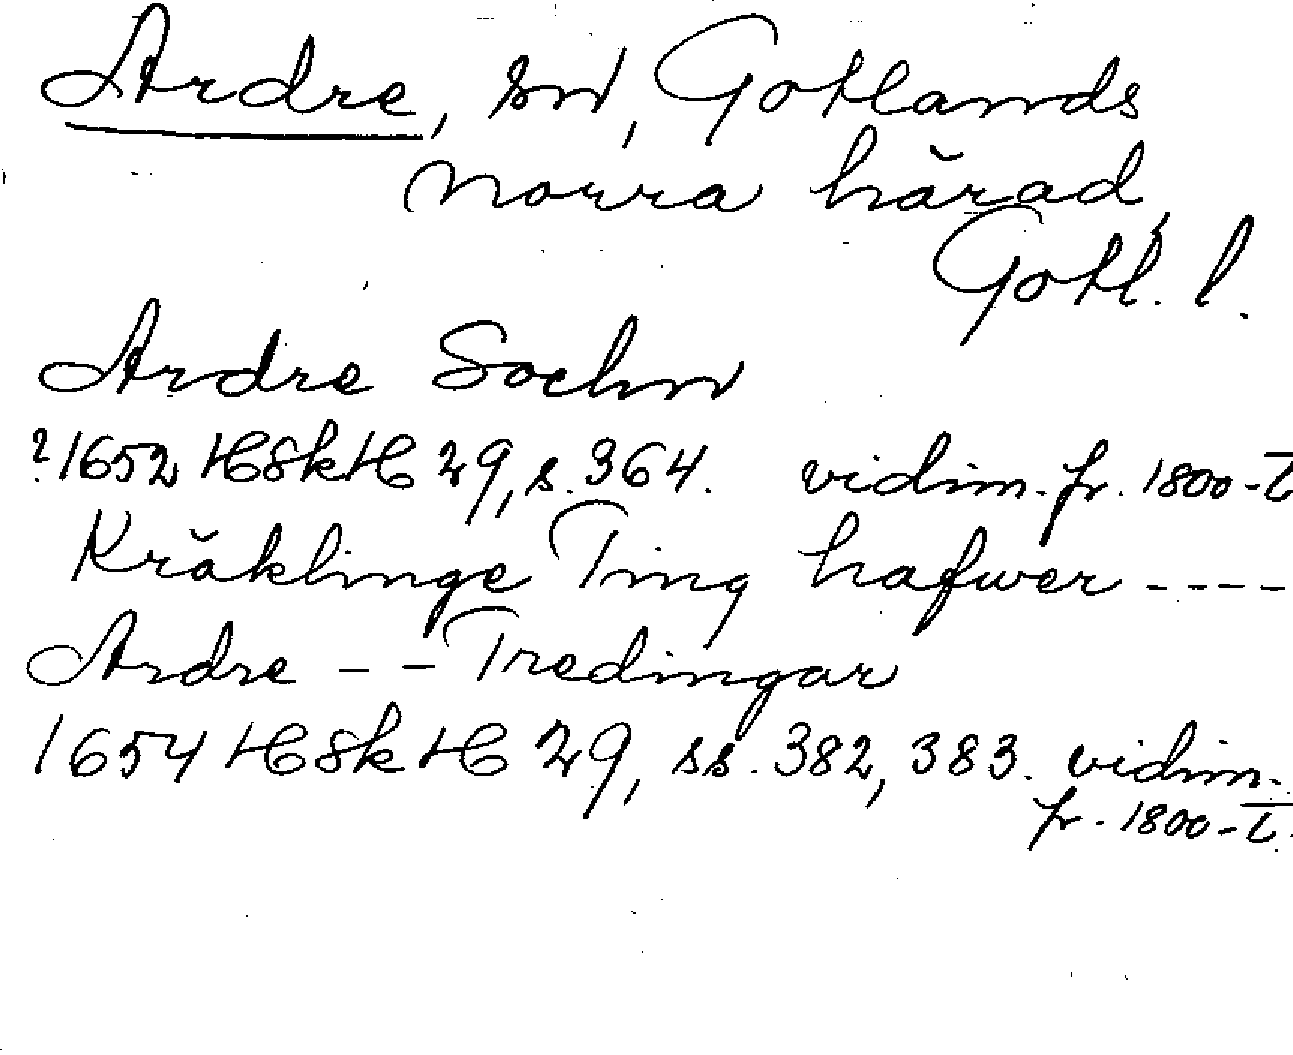 Ardre, sn, Gotlands
norra härad,
Gotl. l.
Ardre Sochn
?1652 HSkH 29, s. 364. vidim. fr. 1800-t
Kräklinge Ting hafwer ----
Ardre -- Tredingar
1654 HSkH 29, ss. 382, 383. vidim.
fr. 1800-t.